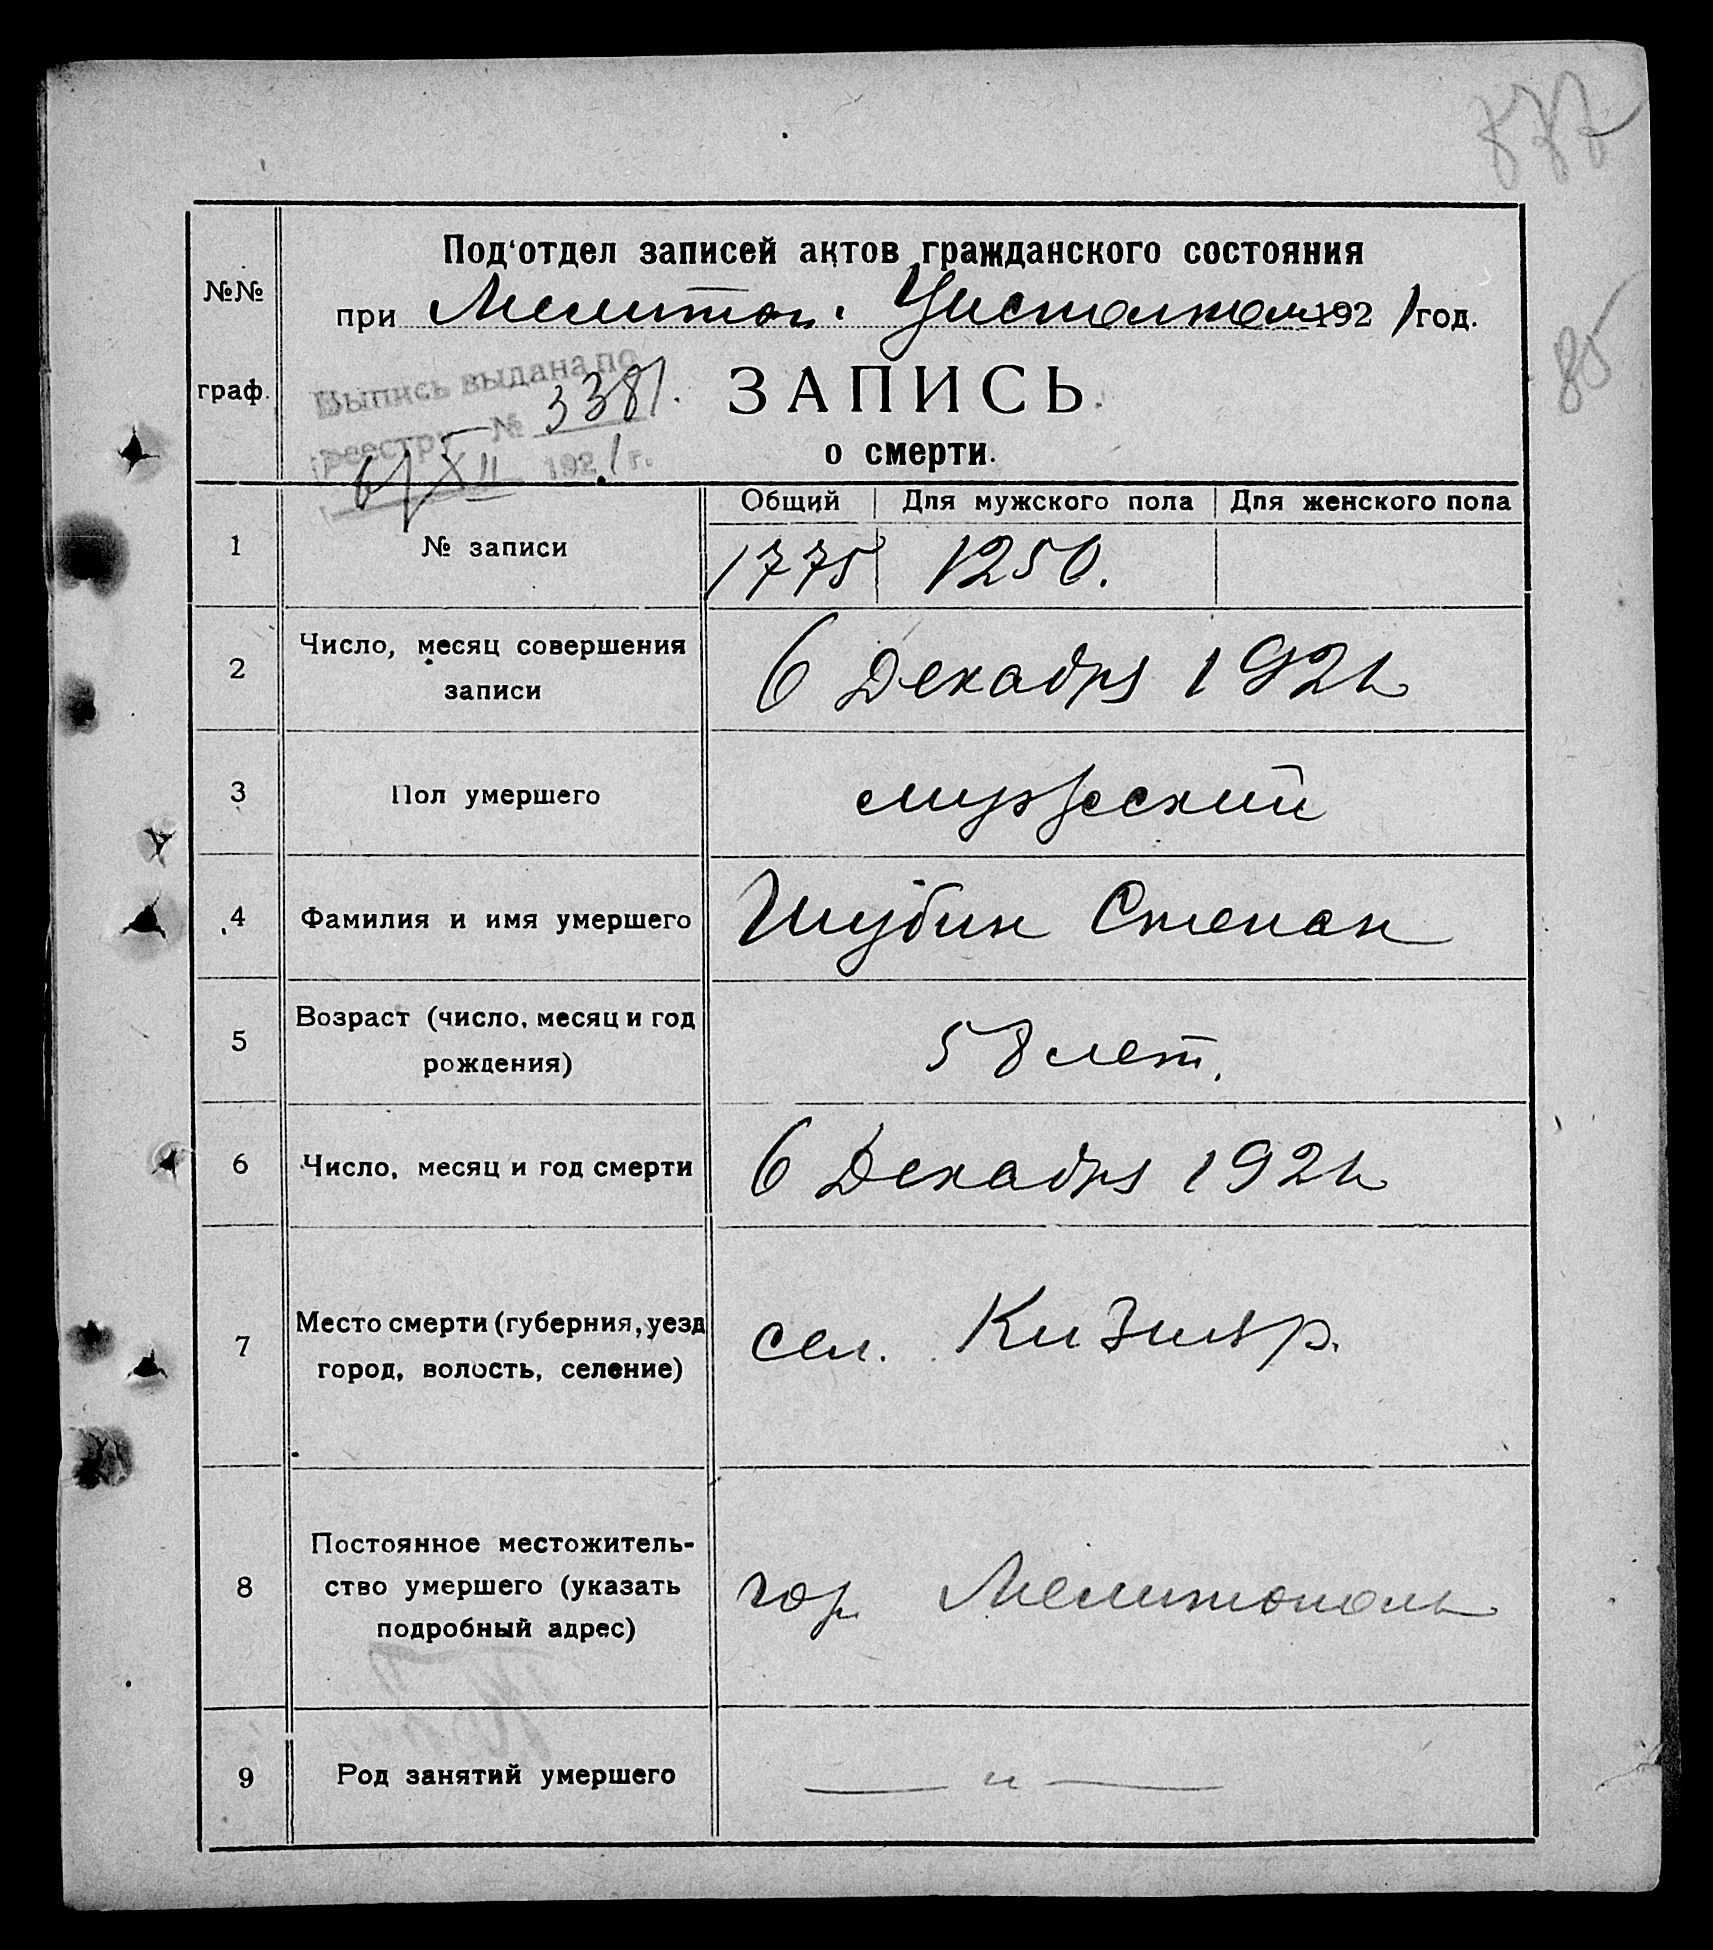 877
Под'отдел записей актов гражданского состояния
при Мелитоп. Уисполкоме 1921 год.
85
№№
граф.
Выпись выдана по
реестру № 3381.
6/XII 1921 г.
ЗАПИСЬ
о смерти.
Общий Для мужского пола Для женского пола
1 № записи 1775 1250.
2 Число, месяц совершения
записи
6 Декабря 1921
3 Пол умершего мужеский
4 Фамилия и имя умершего Шубин Степан
5 Возраст (число, месяц и год
рождения)
58 лет.
6 Число, месяц и год смерти 6 Декабря 1921
7 Место смерти (губерния, уезд
город, волость, селение)
сел. Кизияр.
8 Постоянное местожитель-
ство умершего (указать
подробный адрес)
гор Мелитополь
9 Род занятий умершего — „ —